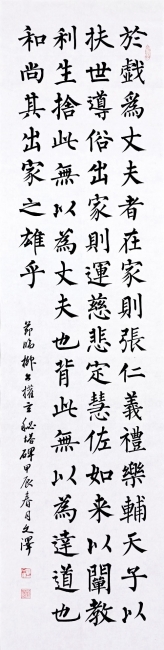 於戲為丈夫者在家則張仁義禮樂輔天子以
扶世導俗出家則運慈悲定慧佐如来以闡教
利生捨此無以為丈夫也背此無以為達道也
和尚其出家之雄乎
節臨柳公權玄秘塔碑甲辰春月文澤